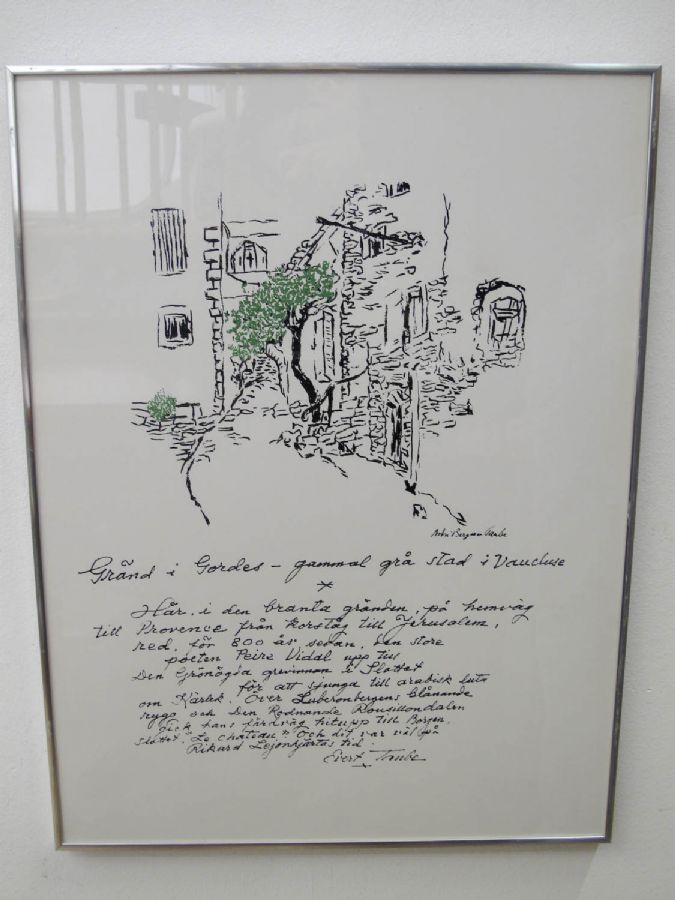 Astri Bergman Taube
Gränd i Gordes – gammal grå stad i Vaucluse
Här, i den branta gränden, på hemväg
till Provence från korståg till Jerusalem,
red, för 800 år sedan, den store
poeten Peire Vidal upp till
Den Grönögda grevinnan i Slottet
för att sjunga till arabisk luta
om Kärlek. Över Luberonbergens blånande
rygg och Den Rodnande Roussillondalen
gick hans färdväg hitupp till Borgen,
slottet, "Le chateau". Och dit var väl på
Rikard Lejonhjärtas tid.
Evert Taube